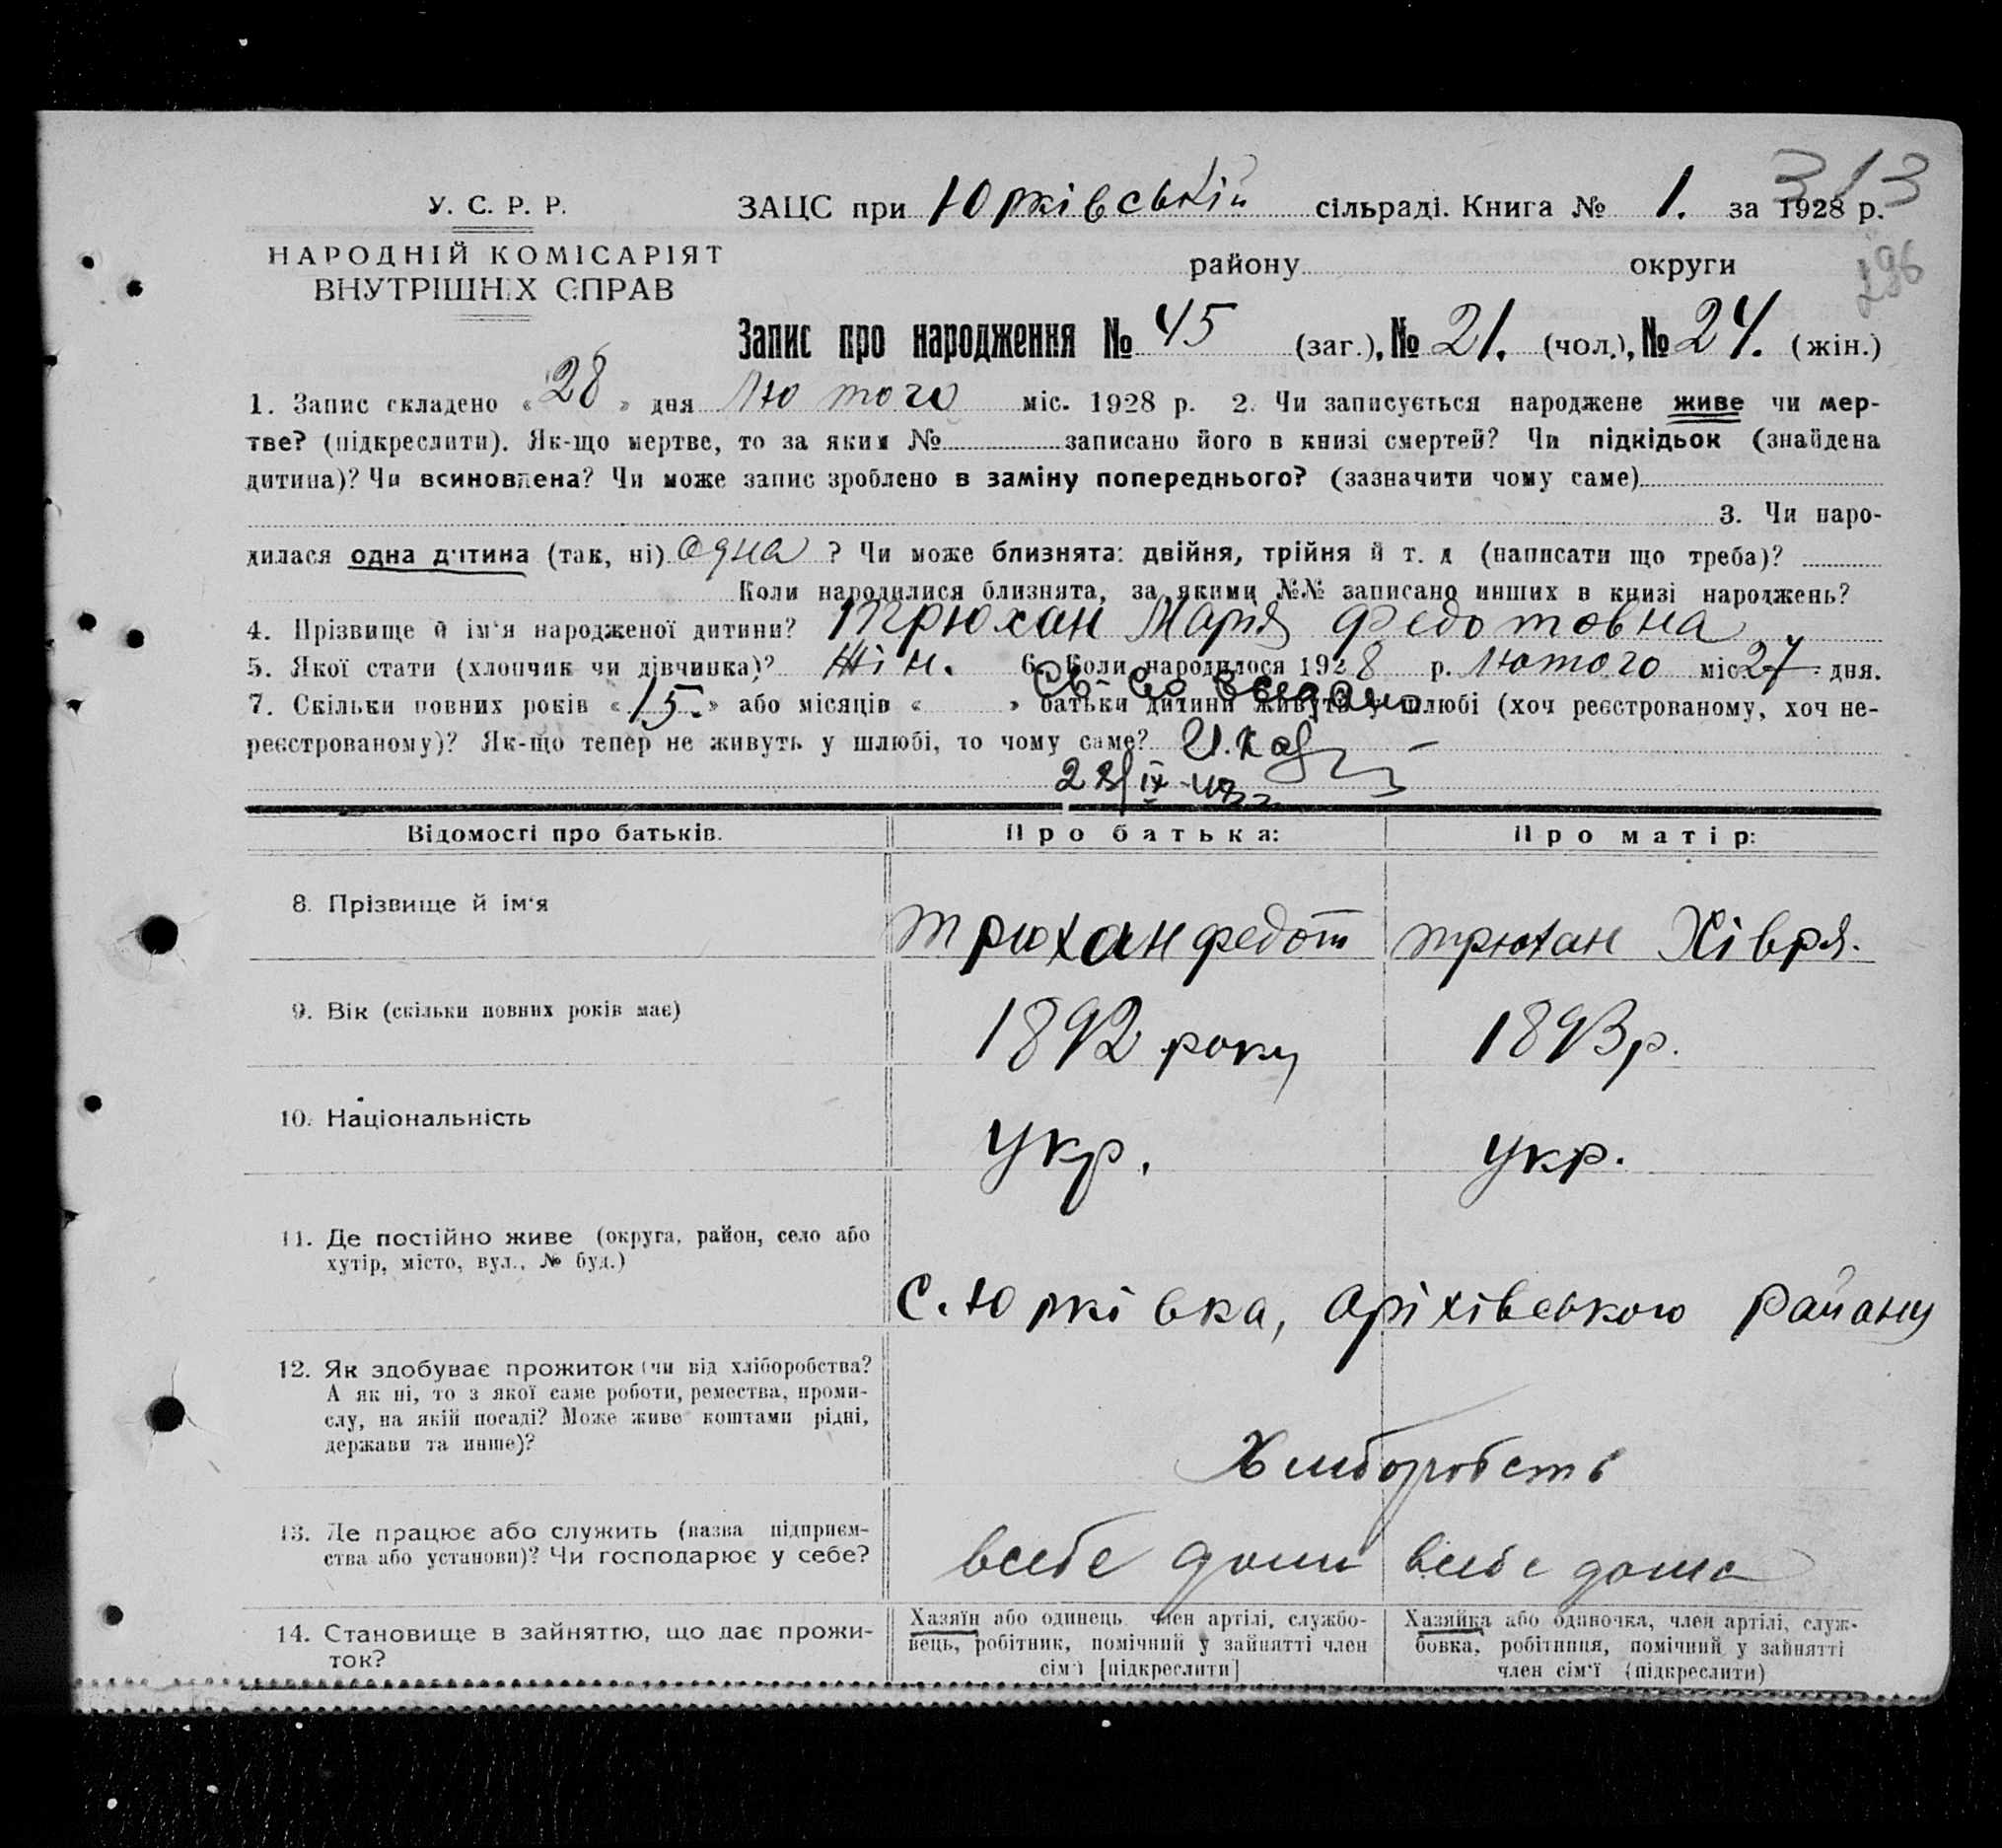 313
У. С. Р. Р.
НАРОДНІЙ КОМІСАРІЯТ
ВНУТРІШНІХ СПРАВ
ЗАЦС при Юрківській сільраді. Книга № 1. за 1928 р.
району округи
296
Запис про народження № 45 (заг.), № 21. (чол.), № 24. (жін.)
1. Запис складено « 28 » дня лютого міс. 1928 р. 2. Чи записується народжене живе чи мер-
тве? (підкреслити). Як-що мертве, то за яким № записано його в книзі смертей? Чи підкідьок (знайдена
дитина)? Чи всиновлена? Чи може запис зроблено в заміну попереднього? (зазначити чому саме)
3. Чи наро-
дилася одна дитина (так, ні) одна ? Чи може близнята: двійня, трійня й т. д (написати що треба)?
Коли народилися близнята, за якими №№ записано инших в книзі народжень?
4. Прізвище й ім'я народженої дитини? Трюхан Марія Федотовна
5. Якої стати (хлопчик чи дівчинка)? жін. 6. Коли народилося 1928 р. лютого міс. 27 дня.
7. Скільки повних років « 15. » або місяців « » батьки дитини живуть у шлюбі (хоч реєстрованому, хоч не-
реєстрованому)? Як-що тепер не живуть у шлюбі, то чому саме?
Відомості про батьків. Про батька: Про матір:
8. Прізвище й ім'я Трюхан Федот Трюхан Хівря.
9. Вік (скільки повних років має) 1892 року 1893 р.
10. Національність Укр. Укр.
11. Де постійно живе (округа, район, село або
хутір, місто, вул., № буд.)
с. Юрківка, Оріхівського району
12. Як здобуває прожиток (чи від хліборобства?
А як ні, то з якої саме роботи, ремества, проми-
слу, на якій посаді? Може живе коштами рідні,
держави та инше)?
Хліборобств
13. Де працює або служить (назва підприєм-
ства або установи)? Чи господарює у себе?
всебе дома всебе дома
14. Становище в зайняттю, що дає прожи-
ток?
Хазяїн або одинець член артілі, службо-
вець, робітник, помічний у зайнятті член
сім'ї [підкреслити]
Хазяйка або одиночка, член артілі, служ-
бовка, робітниця, помічний у зайнятті
член сім'ї (підкреслити)